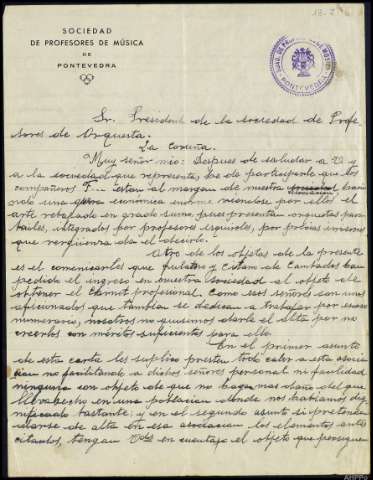 SOCIEDAD
DE PROFESORES DE MÚSICA
DE
PONTEVEDRA
Sr. Presidente de la sociedad de Profe
sores de Orquesta.
La Coruña.
Muy señor mio: Despues de saludar a V. y
a la sociedad que representa, he de participarle que los
compañeros F... estan al margen de nuestra
asociacion
una economica enorme viendose por ellos el
arte rebajado en grado sumo, pues presentan orquestas para
bailes, integrados por profesores esquiroles, por
que verguenza da el oirlos.
Otro de los objetos de la presente
es el comunicarles que y de Cambados han
pedido el ingreso en nuestra sociedad al objeto de
obtener el carnet profesional. Como ese señores son unos
aficionados que tambien se dedican a trabajar por escaso
numerario, nosotros no quisimos darle el alta por no
creerlos con méritos suficientes para ello.
En el primer asunto
de esta carta les suplico presten todo calor a esta asocia
cion no facilitando a dichos señores personal ni facilidad
ninguna con objeto de que no hagan mas daño del que
lleva hecho en una poblacion donde nos habiamos dig
nificado bastante; y en el segundo asunto si pretenden
darse de alta en esa asociacion los elementos antes
citados, tengan Vdes en cuenta el objeto que persiguen
AHPPo